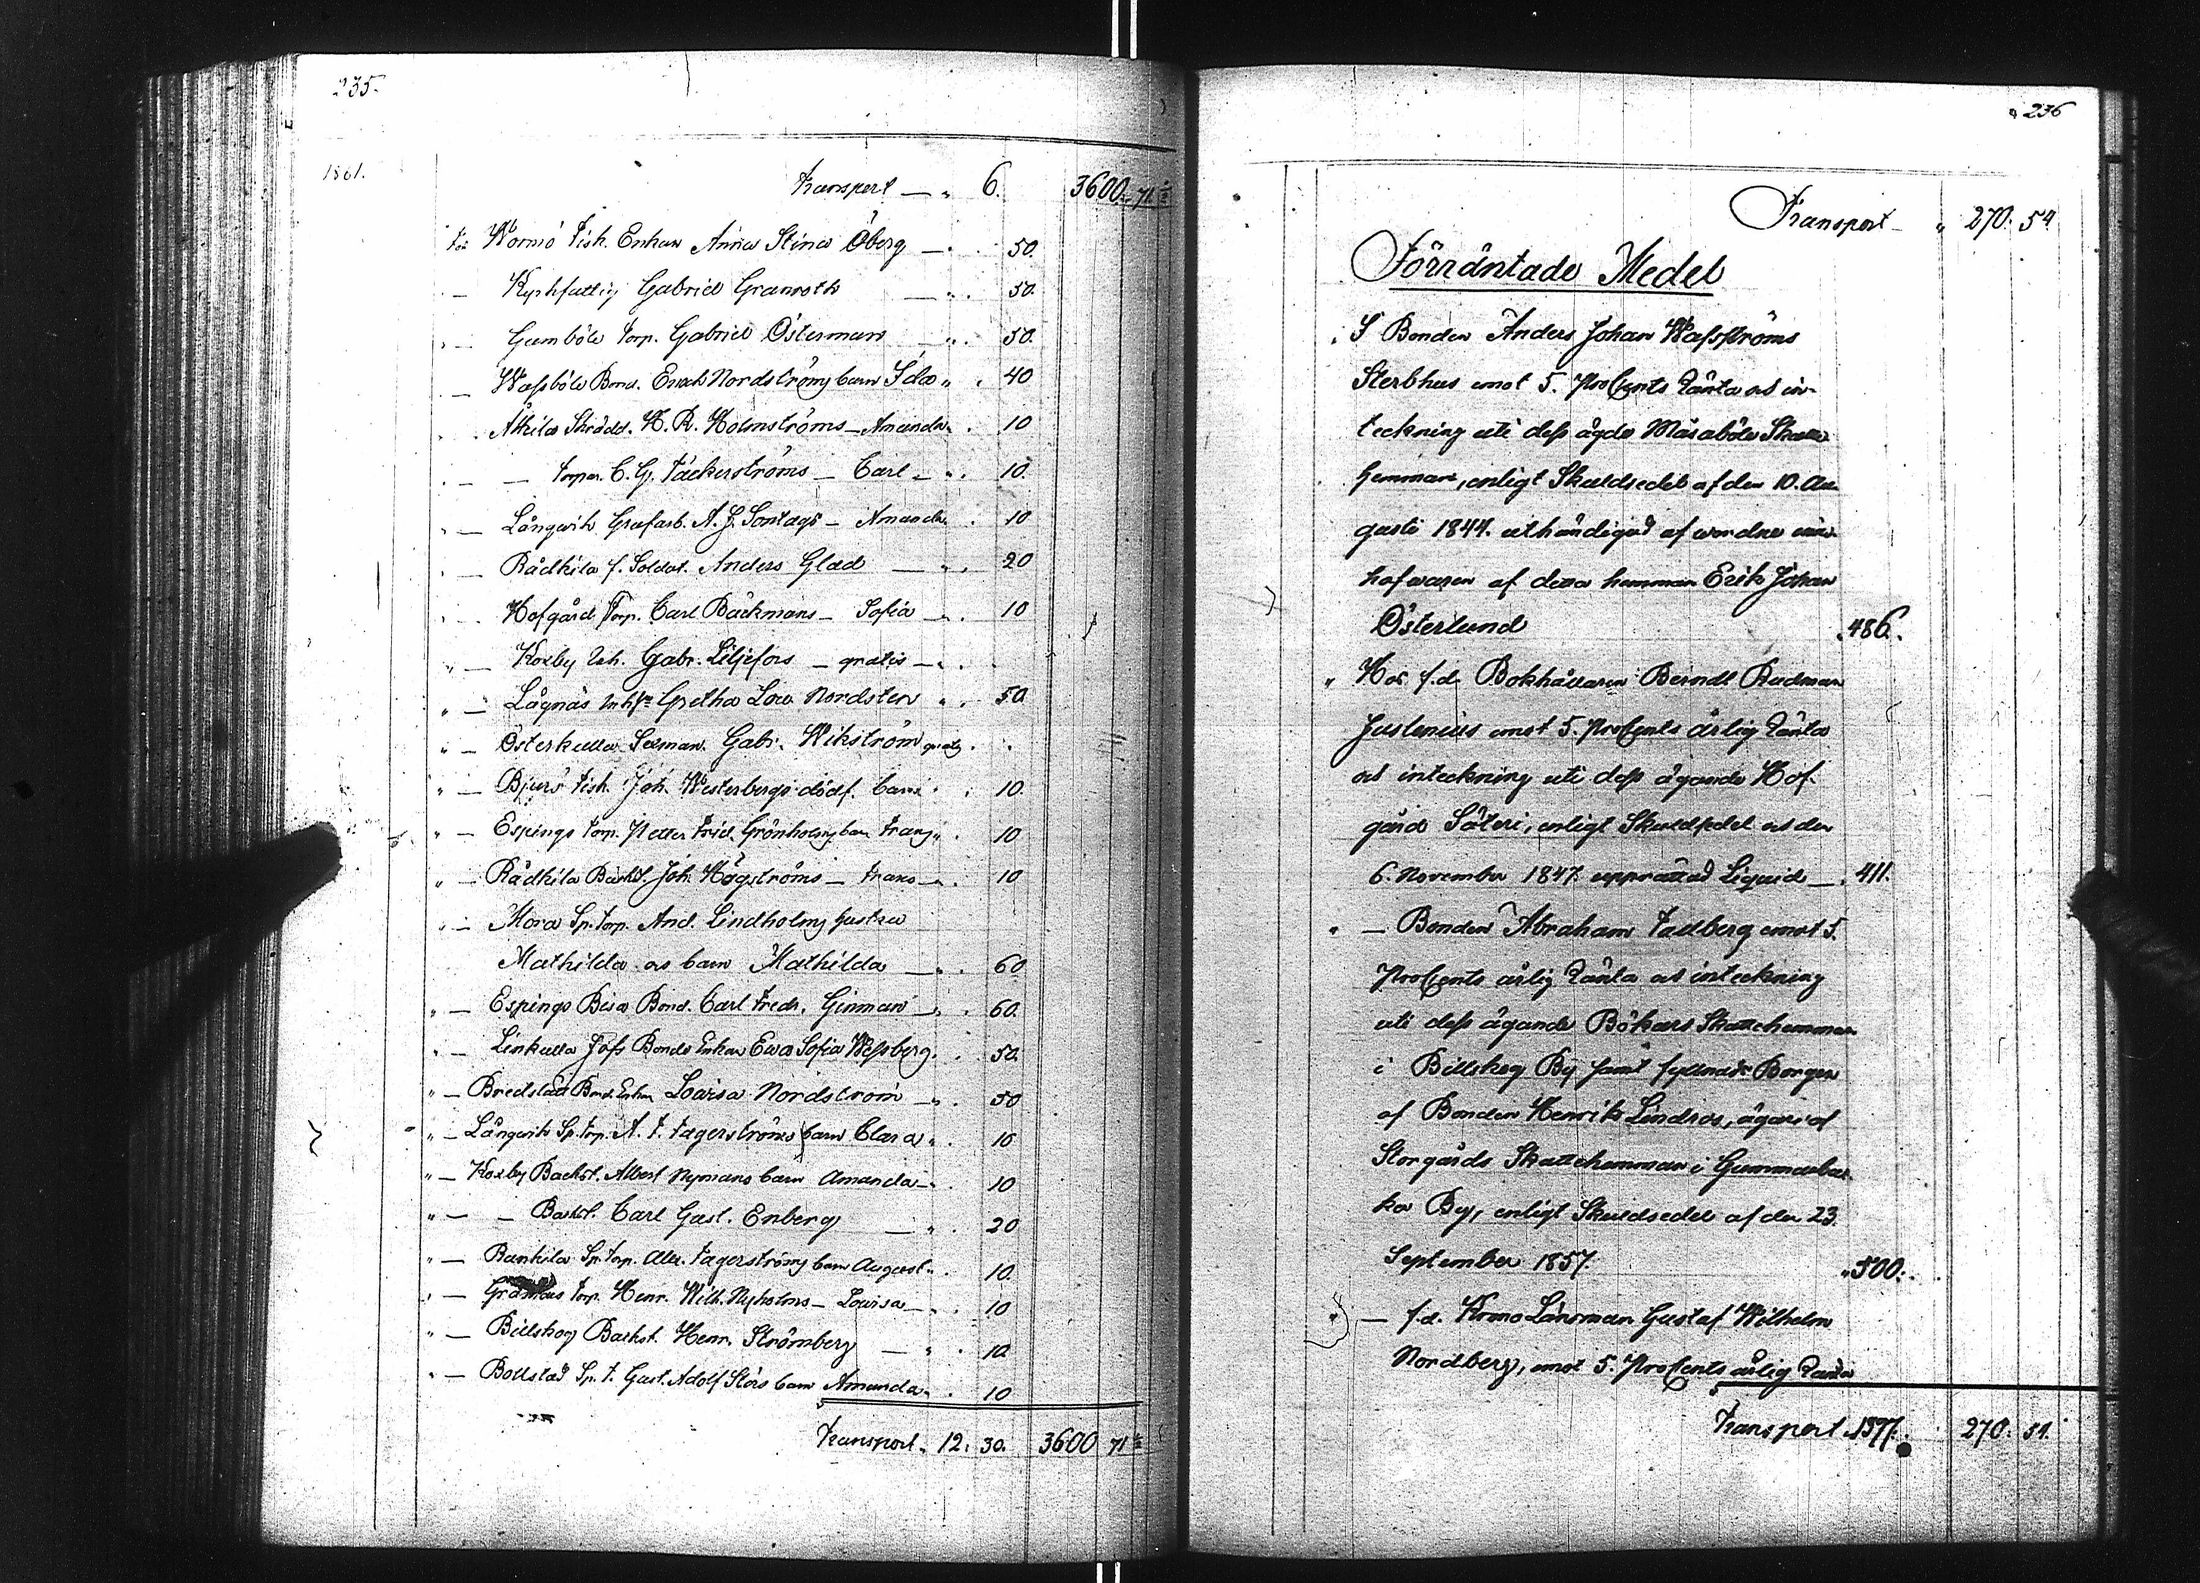 235.
1861.
Transport — " 6. 3600. 71 1/2
för Wormö Fisk. Enkan Anna Stina Öberg — . 50.
" — Kyrkfattig Gabriel Granroth — " . 50.
" — Gumböle Torp. Gabriel Österman — " . 50.
" — Wassböle Bond. Erick Nordströms barn Ida " . 40
" — Åkila Skrädd. H. R. Holmströms — Amanda . 10
" — — Torpar. C. G. Täckerströms — Carl — " . 10.
" — Långwik Grufarb. A. J. Sontags — Amanda . 10
" — Rådkila f. Soldat. Anders Glad — " . 20
" — Hofgård Torp. Carl Bäckmans — Sofia — . 10
" — Koxby Inh. Gabr. Liljefors — gratis — " .
" — Lågnäs Gretha Lowisa Nordsten " . 50
" — Österkulla Sexman. Gabr. Wikström gratis .
" — Bjursö Fisk. Joh. Westerbergs dödf. barn . 10.
" — Espings Torp. Petter Frid. Grönholms barn Frans " . 10
" — Rådkila Backst. Joh. Högströms — Frans — . 10
" — Mora Sp. torp. And. Lindholms hustru
Mathilda och barn Mathilda — " . 60
" — Espings Bisa Bond. Carl Fredr. Ginman — " . 60.
" — Linkulla Joss Bonds Enkan Ewa Sofia Wessberg . 50.
" — Bredslätt Bond. Enkan Lowisa Nordström — " . 50
" — Långwik Sp. torp. A. F. Fagerströms barn Clara " . 10
" — Koxby Backst. Albert Nymans barn Amanda — " . 10
" — — Backst. Carl Gust. Enberg — " . 20
" — Bankila Sp. torp. Alex. Fagerströms barn August " . 10.
" — Torp. Henr. Wilh. Nyholms — Lowisa — . 10
" — Billskog Backst. Henr. Strömberg — " . 10.
" — Bollstad Sp. T. Gust. Adolf Störs barn Amanda . 10
Transport " 12. 30. 3600 71 1/2
236
Transport — " 270. 54
Förräntade Medel
" I Bonden Anders Johan Wassströms
Sterbhus emot 5. ProCents Ränta och in-
teckning uti dess ägde Mäsaböle Skatte
hemman, enligt Skuldsedel af den 10. Au-
gusti 1844. uthändigad af wordne inne-
hafwaren af detta hemman Erik Johan
Österlund . 486.
" Hos f.d. Bokhållaren Berndt Rudman
Juslenius emot 5. ProCents årlig Ränta
och inteckning uti dess ägande Hof-
gård Säteri, enligt Skuldsedel och den
6. November 1847. upprättad Liquid — . 411.
" — Bonden Abraham Fallberg emot 5.
ProCents årlig Ränta och inteckning
uti dess ägande Bökars Skattehemman
i Billskog By samt fyllnads Borgen
af Bonden Henrik Lindros, ägare af
Storgårds Skattehemman i Gammelbac-
ka By, enligt Skuldsedel af den 23.
September 1857. " 500.
" — f.d. Krono Länsman Gustaf Wilhelm
Nordberg, emot 5. ProCents årlig Ränta
Transport 1397. 270. 54.